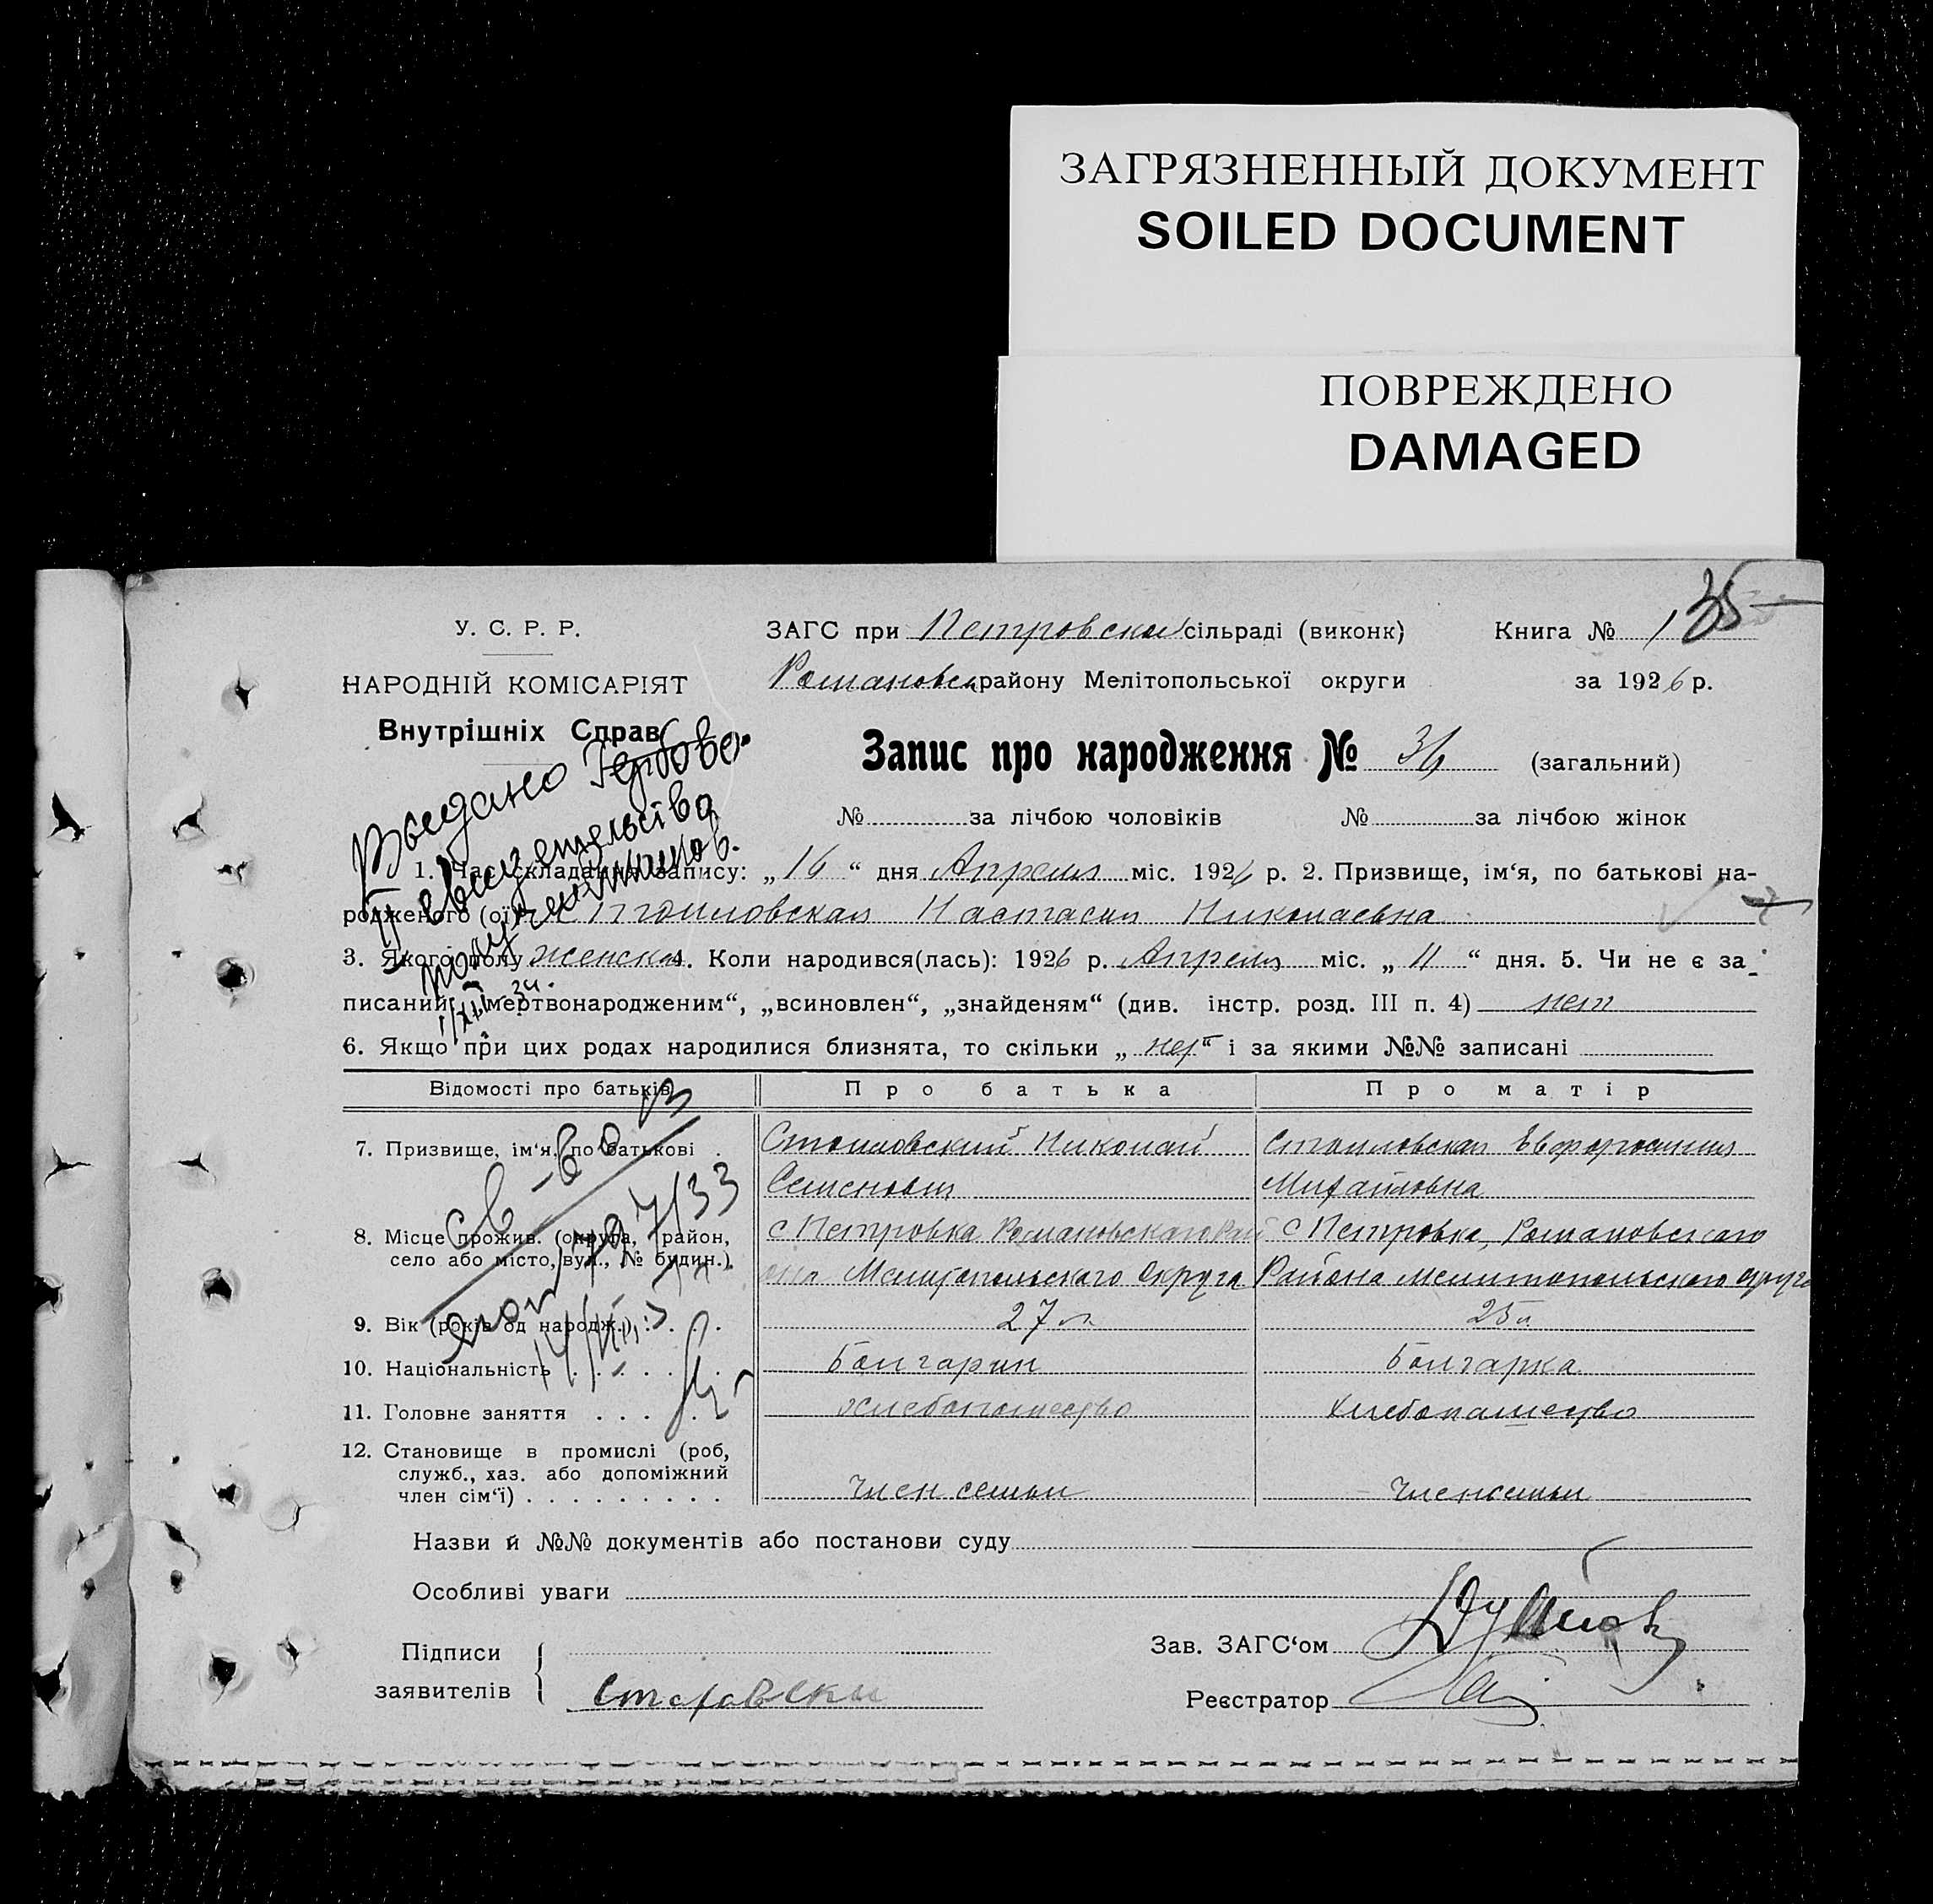 ЗАГРЯЗНЕННЫЙ ДОКУМЕНТ
SOILED DOCUMENT
ПОВРЕЖДЕНО
DAMAGED
35
У. С. Р. Р.
НАРОДНІЙ КОМІСАРІЯТ
Внутрішніх Справ
ЗАГС при Петровской сільраді (виконк)
Книга № 1
Романовск району Мелітопольської округи
за 1926 р.
Запис про народження № 34 (загальний)
№ за лічбою чоловіків № за лічбою жінок
Выдано Гербово.
свидетельства
1. Час складання запису: „16“ дня Апреля міс. 1926 р. 2. Призвище, ім‘я, по батькові на-
родженого (ої) Стоиловская Настасия Николаевна
3. Якого полу женска 4. Коли народився(лась): 1926 р. Апреля міс. „11“ дня. 5. Чи не є за-
писаний: „мертвонародженим“, „всиновлен“, „знайденям“ (див. інстр. розд. III п. 4) нет
6. Якщо при цих родах народилися близнята, то скільки „нет“ і за якими №№ записані
Відомості про батьків
Про батька
Про матір
7. Призвище, ім‘я, по батькові .
Стоиловский Николай
Семенович
Стоиловская Евфросиния
Михайловна
8. Місце прожив. (округа, район,
село або місто, вул., № будин.).
с Петровка Романовскаго Рай
она Мелитопольскаго Округа
с Петровка, Романовскаго
Района Мелитопольскаго округа
9. Вік (років од народж.) . . . .
27 л
25 л
10. Національність . . . . . .
Болгарин
Болгарка
11. Головне заняття . . . . . .
Хлебопашество
Хлебопашество
12. Становище в промислі (роб,
служб., хаз. або допоміжний
член сім‘ї) . . . . . . . . .
Член семьи
Член семьи
Назви й №№ документів або постанови суду
Особливі уваги
Підписи
заявителів
Зав. ЗАГС‘ом
Реєстратор